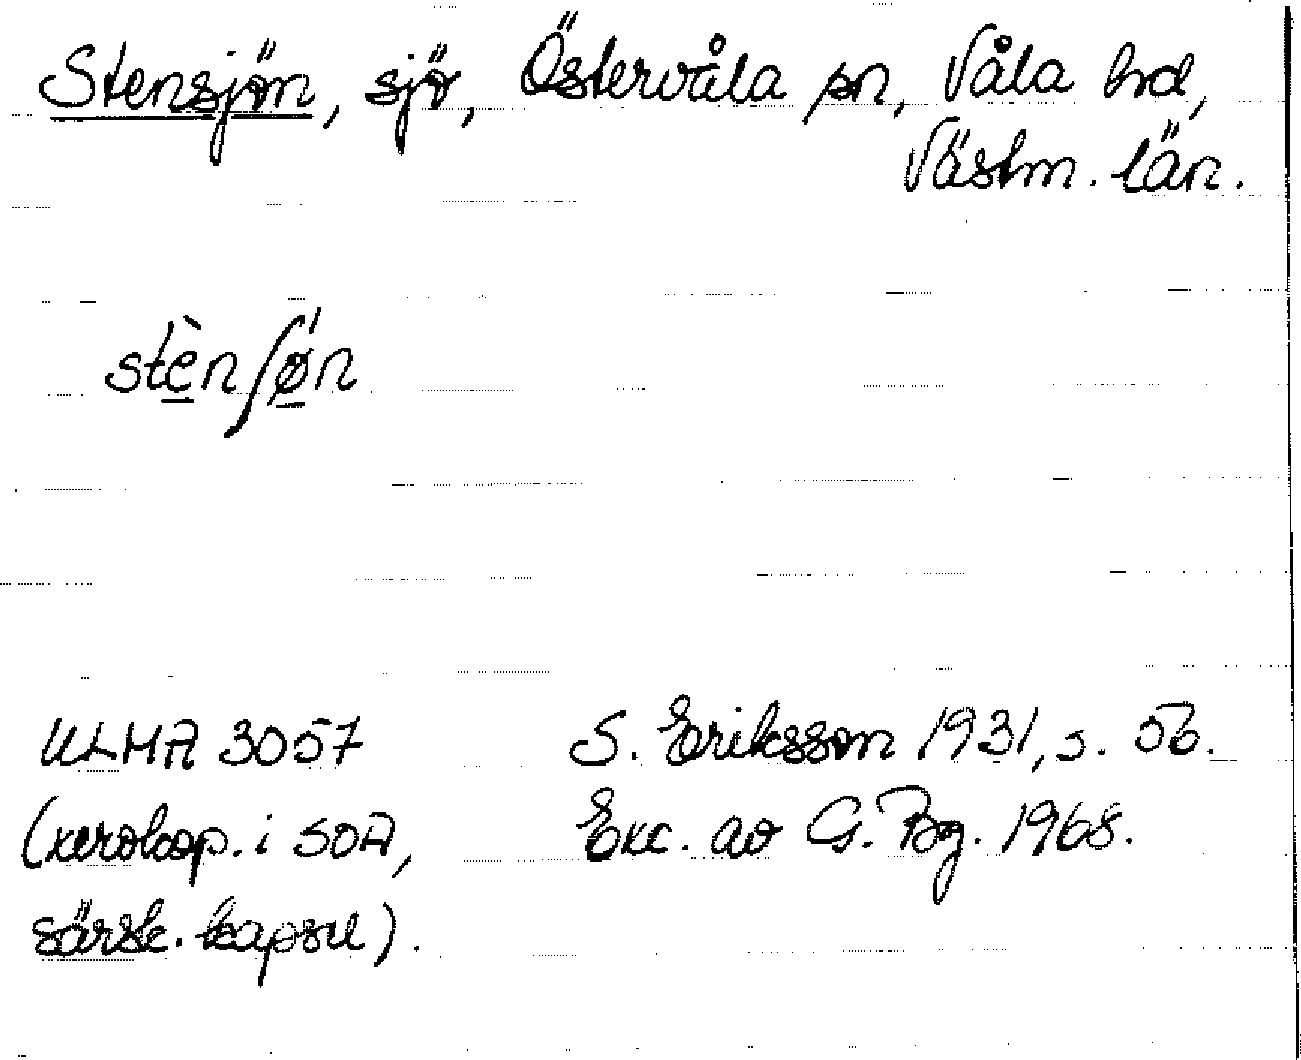 Stensjön, sjö, Östervåla sn, Våla hd,
Västm. län.
stènʃø̀n
ULMA 3057
S. Eriksson 1931, s. 56.
(xerokop. i SOA,
Exc. av G. Bg. 1968.
särsk. kapsel).